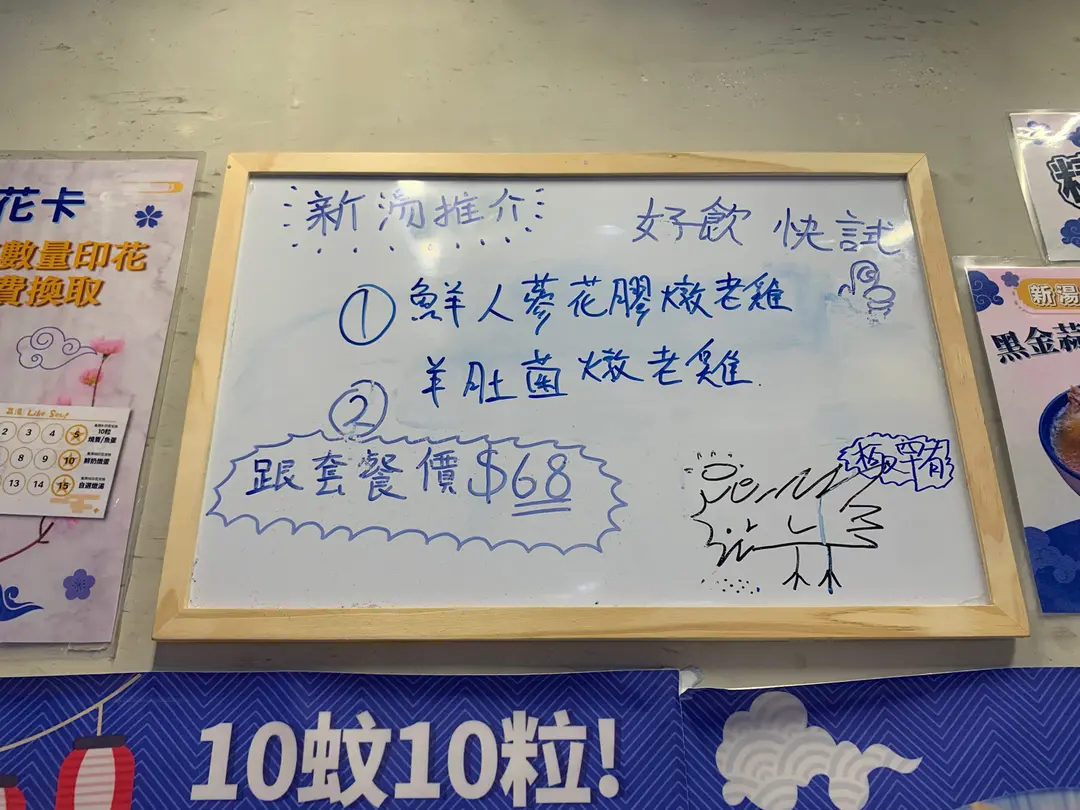 花卡
數量印花
費換取
2 3 4 5
10粒
燒賣/魚蛋
8 9 10
鮮奶燉蛋
13 14 15
自選燉湯
新湯推介
好飲 快試
① 鮮人蔘花膠燉老雞
② 羊肚菌燉老雞
跟套餐價$68
極罕有
新湯
黑金蒜
10蚊10粒!